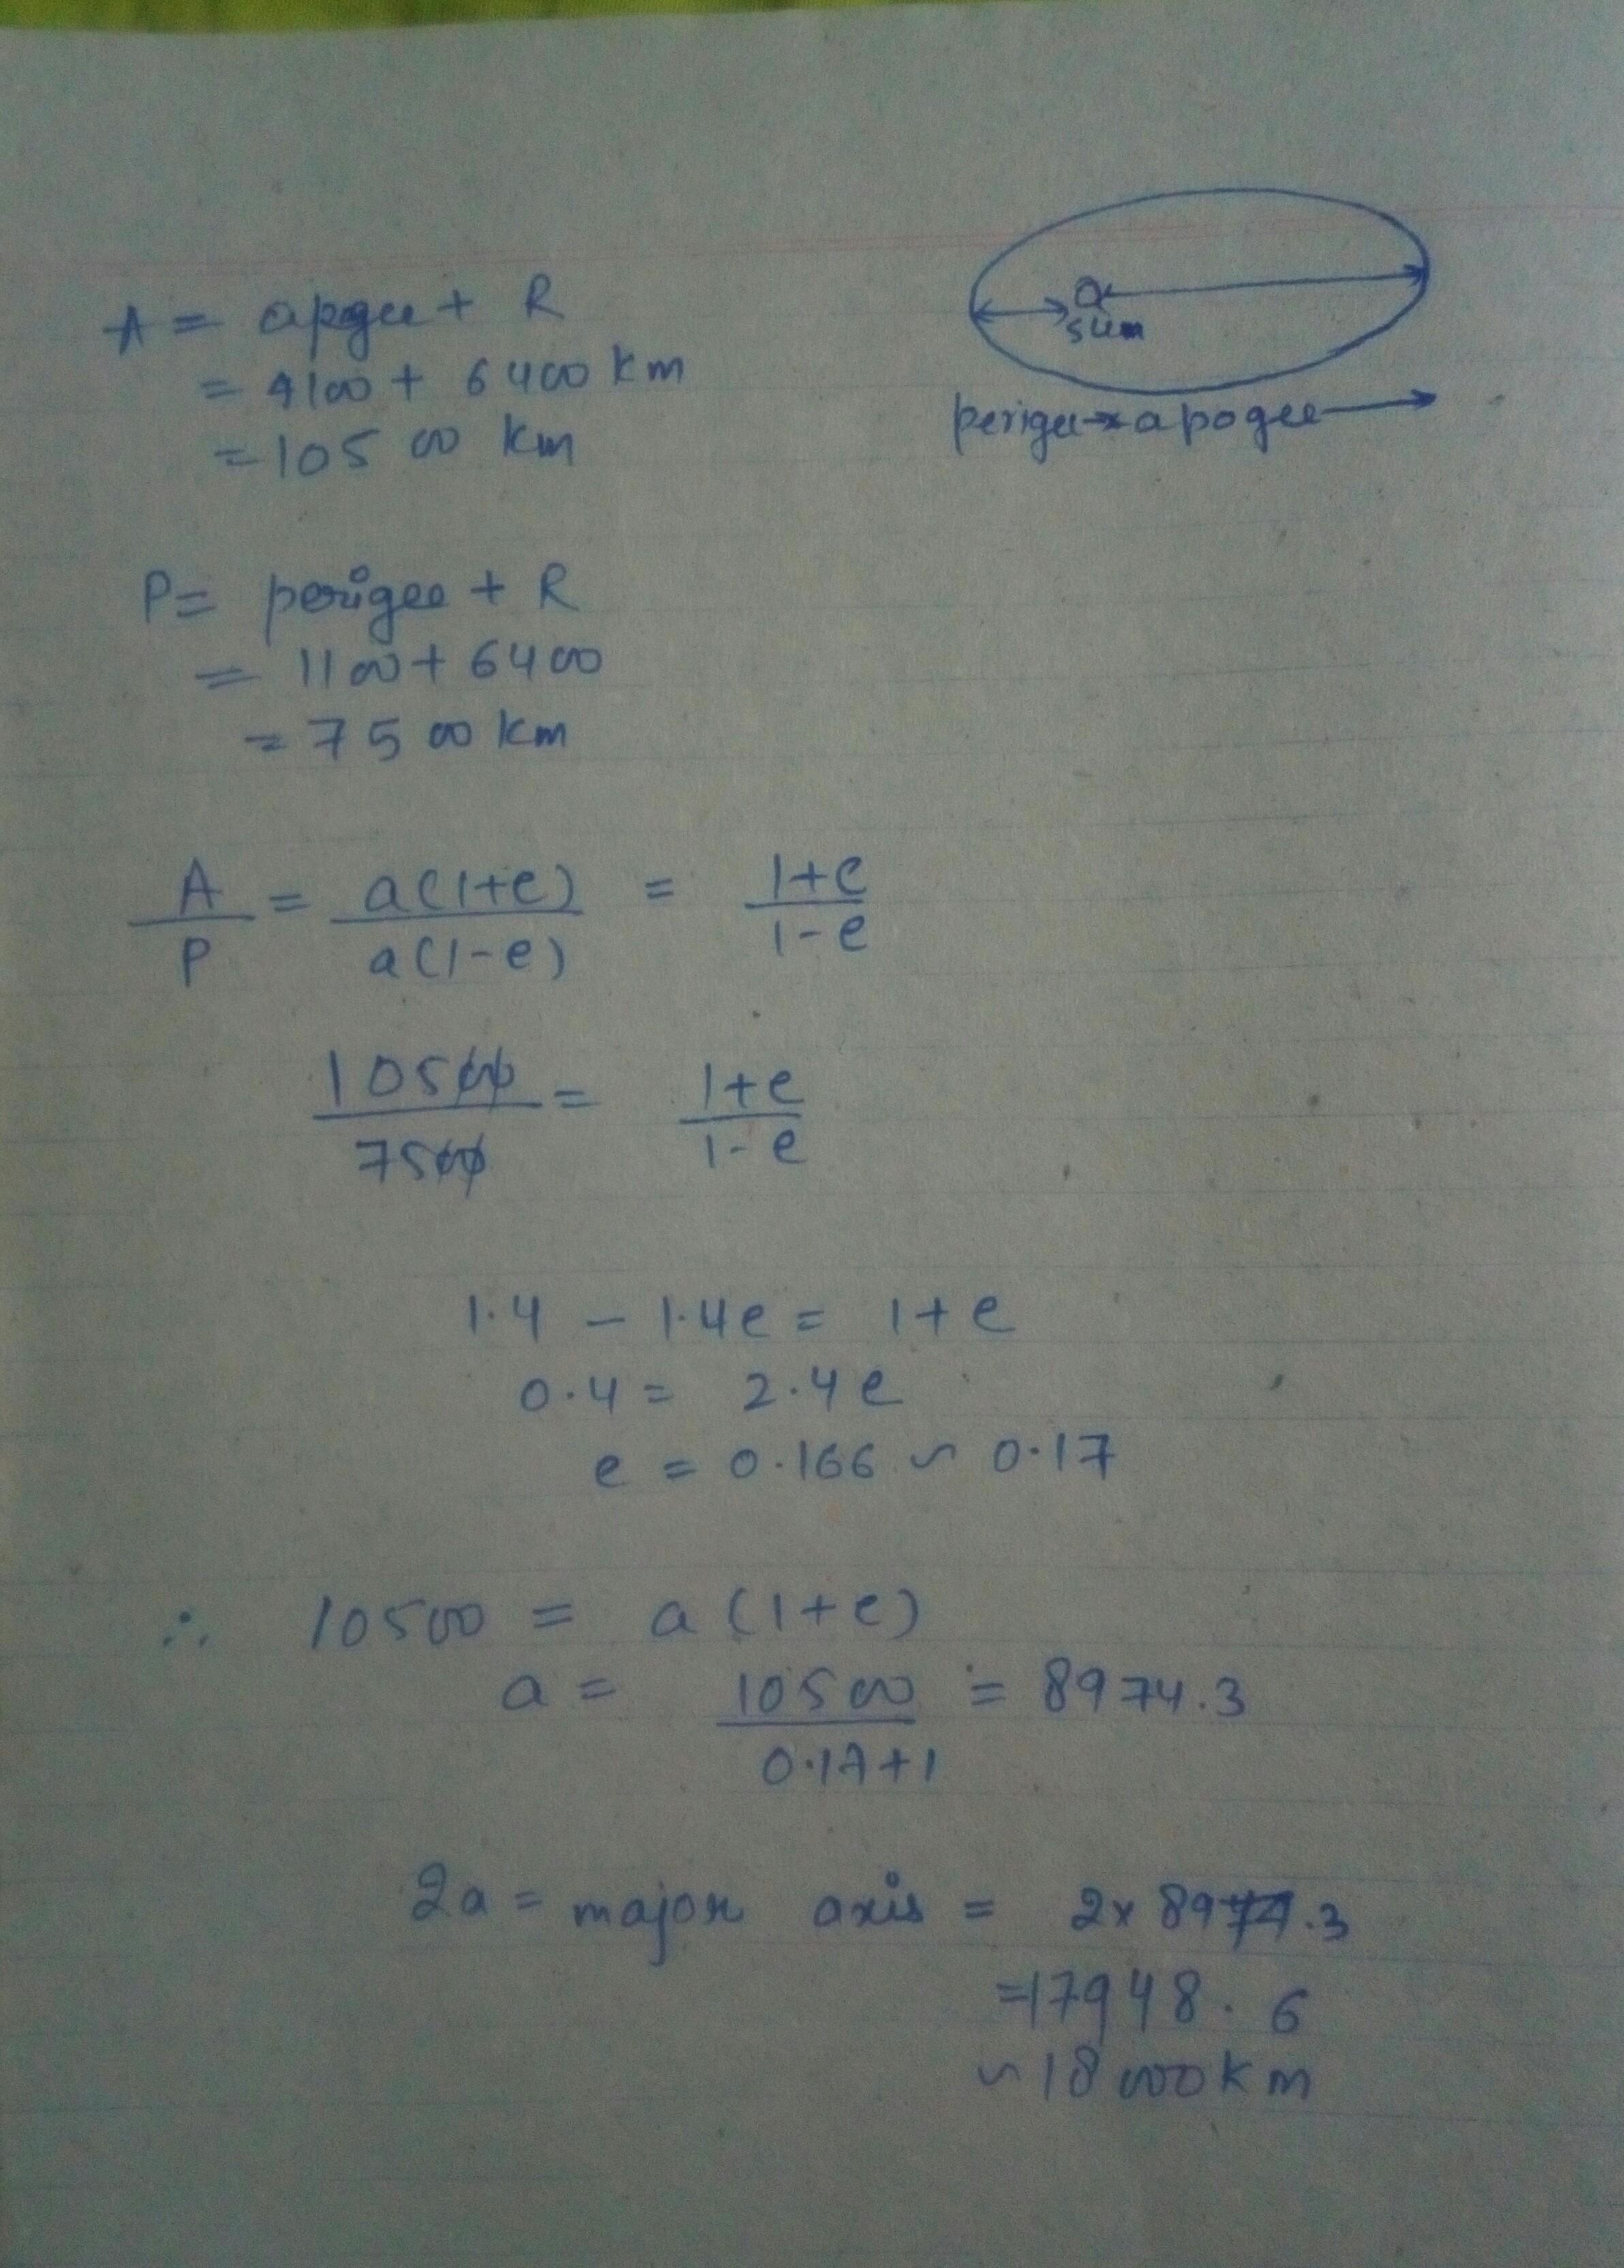 A = apogee + R
= 4100 + 6400 km
= 10500 km
sun
perigee apogee
P = perigee + R
= 1100 + 6400
= 7500 km
A/P = a(1+e)/a(1-e) = 1+e/1-e
10500/7500 = 1+e/1-e
1.4 - 1.4e = 1+e
0.4 = 2.4e
e = 0.166 ~ 0.17
∴ 10500 = a(1+e)
a = 10500/0.17+1 = 8974.3
2a = major axis = 2 x 8974.3
= 17948.6
~ 18000 km